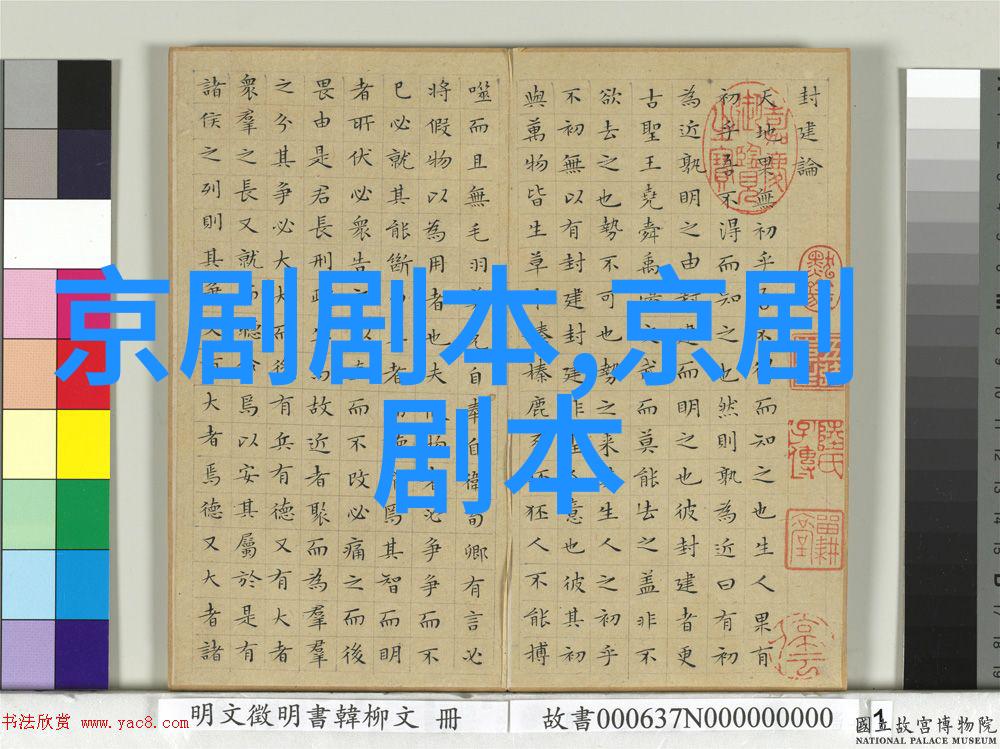 封建論
天地果無初乎吾不得而知之也生人果有
初乎吾不得而知之也然則孰為近曰有初
為近孰明之由封建而明之也彼封建者更
古聖王堯舜禹湯文武而莫能去之蓋非不
欲去之也勢不可也勢之来其生人之初乎
不初無以有封建封建非聖人意也彼其初
與萬物皆生草木榛榛鹿豕狉狉人不能搏
噬而且無毛羽莫克自奉自衛荀卿有言必
將假物以為用者也夫假物者必争争而不
已必就其能斷曲直者而聽命焉其智而明
者所伏必衆告之以直而不改必痛之而後
畏由是君長刑政生焉故近者聚而為羣羣
之分其争必大大而後有兵有德又有大者
衆羣之長又就而聽命焉以安其屬於是有
諸侯之列則其争又有大者焉德又大者諸
京剧剧本,京剧
剧本
书法欣赏 www.yac8.com
明文徵明書韓柳文 冊
故書000637N000000000
1
國立故宮博物院
NATIONAL PALACE MUSEUM